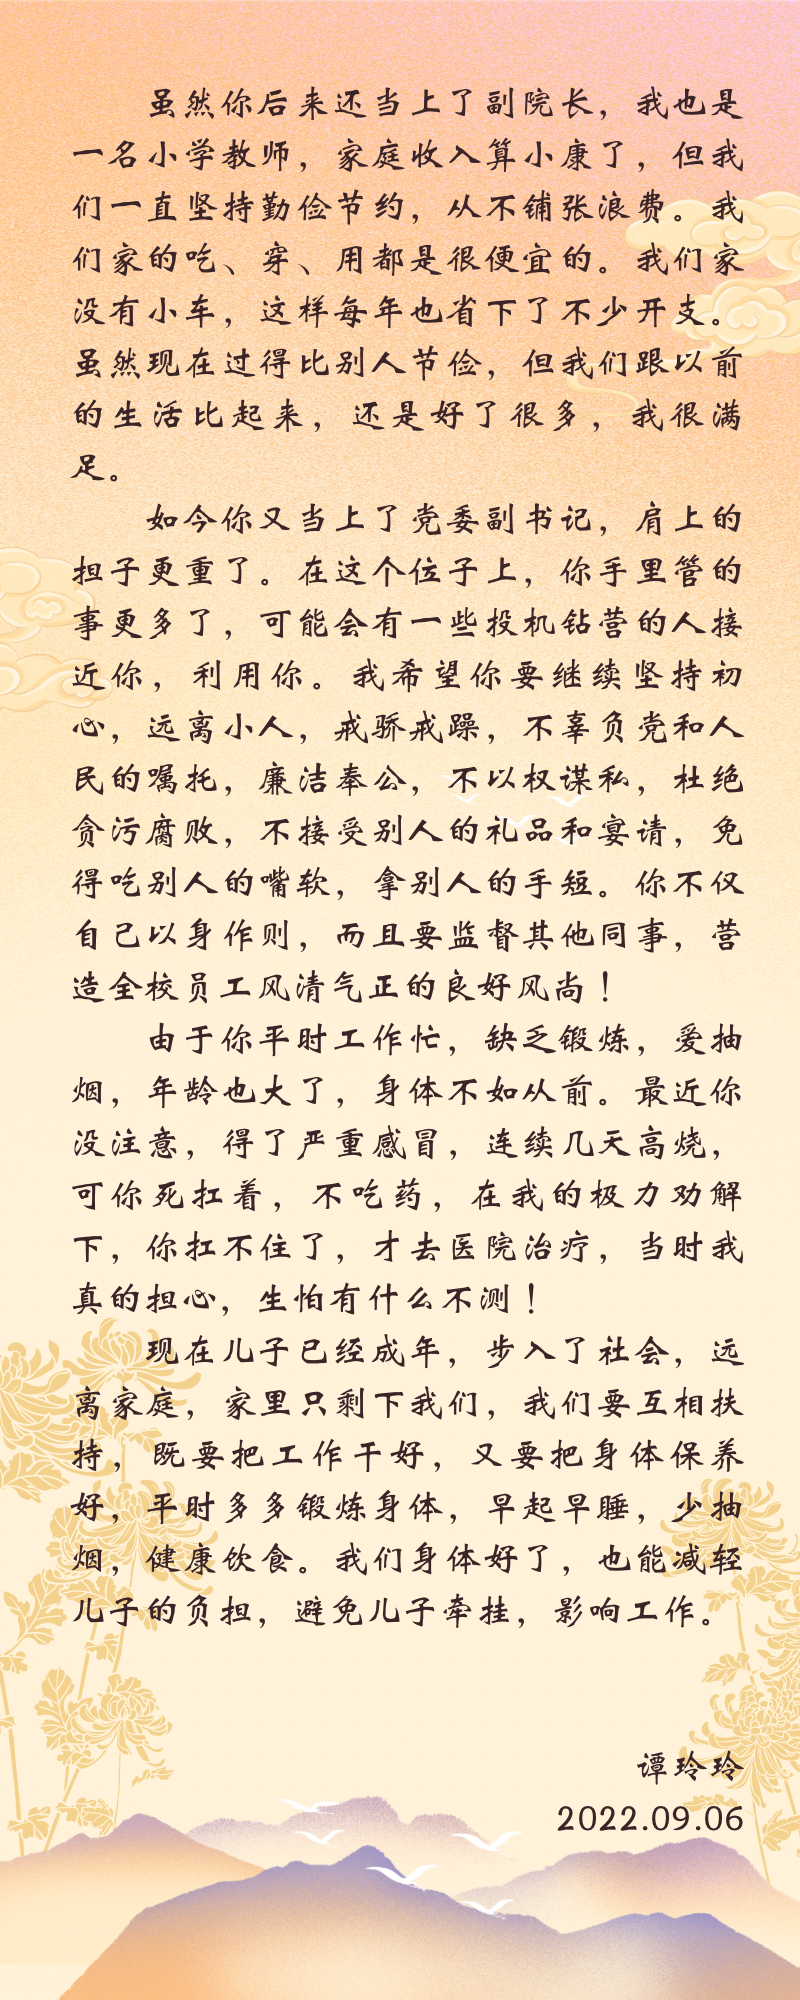 虽然你后来还当上了副院长，我也是
一名小学教师，家庭收入算小康了，但我
们一直坚持勤俭节约，从不铺张浪费。我
们家的吃、穿、用都是很便宜的。我们家
没有小车，这样每年也省下了不少开支。
虽然现在过得比别人节俭，但我们跟以前
的生活比起来，还是好了很多，我很满
足。
如今你又当上了党委副书记，肩上的
担子更重了。在这个位子上，你手里管的
事更多了，可能会有一些投机钻营的人接
近你，利用你。我希望你要继续坚持初
心，远离小人，戒骄戒躁，不辜负党和人
民的嘱托，廉洁奉公，不以权谋私，杜绝
贪污腐败，不接受别人的礼品和宴请，免
得吃别人的嘴软，拿别人的手短。你不仅
自己以身作则，而且要监督其他同事，营
造全校员工风清气正的良好风尚！
由于你平时工作忙，缺乏锻炼，爱抽
烟，年龄也大了，身体不如从前。最近你
没注意，得了严重感冒，连续几天高烧，
可你死扛着，不吃药，在我的极力劝解
下，你扛不住了，才去医院治疗，当时我
真的担心，生怕有什么不测！
现在儿子已经成年，步入了社会，远
离家庭，家里只剩下我们，我们要互相扶
持，既要把工作干好，又要把身体保养
好，平时多多锻炼身体，早起早睡，少抽
烟，健康饮食。我们身体好了，也能减轻
儿子的负担，避免儿子牵挂，影响工作。
谭玲玲
2022.09.06